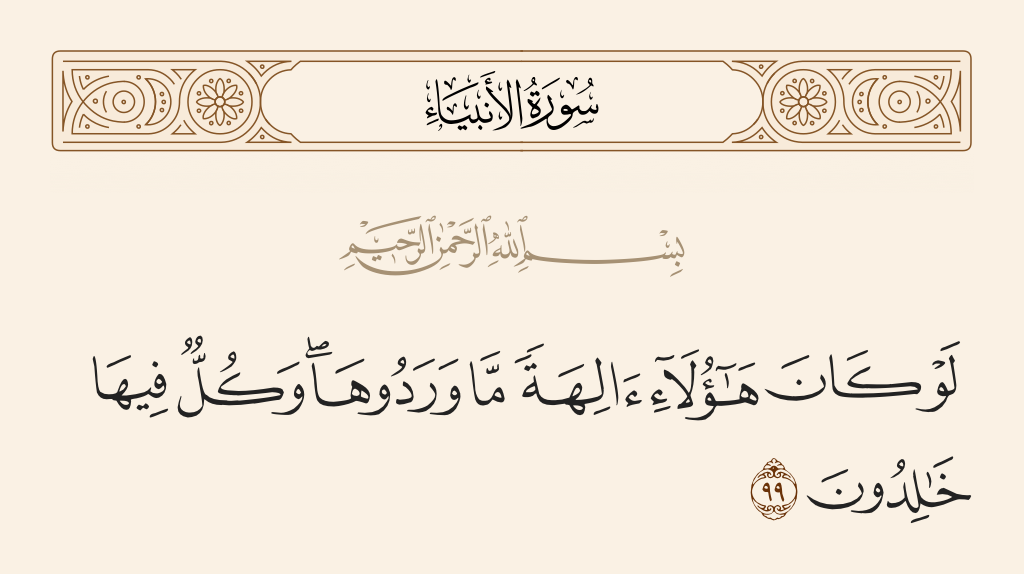 سُورَةُ الأَنبِيَاءِ
بِسْمِ ٱللَّهِ ٱلرَّحْمَٰنِ ٱلرَّحِيمِ
لَوْ كَانَ هَٰٓؤُلَآءِ ءَالِهَةً مَّا وَرَدُوهَا ۖ وَكُلٌّ فِيهَا
خَٰلِدُونَ ٩٩